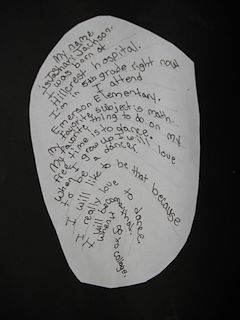 My name
is Jackson.
I was born at
Hillcrest hospital.
I'm in grade right now
I attend
Emerson Elementary.
My favorite subject is math.
My favorite thing to do on my
free time is to dance.
When I grow up I will love
to be a dancer
I will like to be that because
I really love to dance.
I will become that
when I go to college.